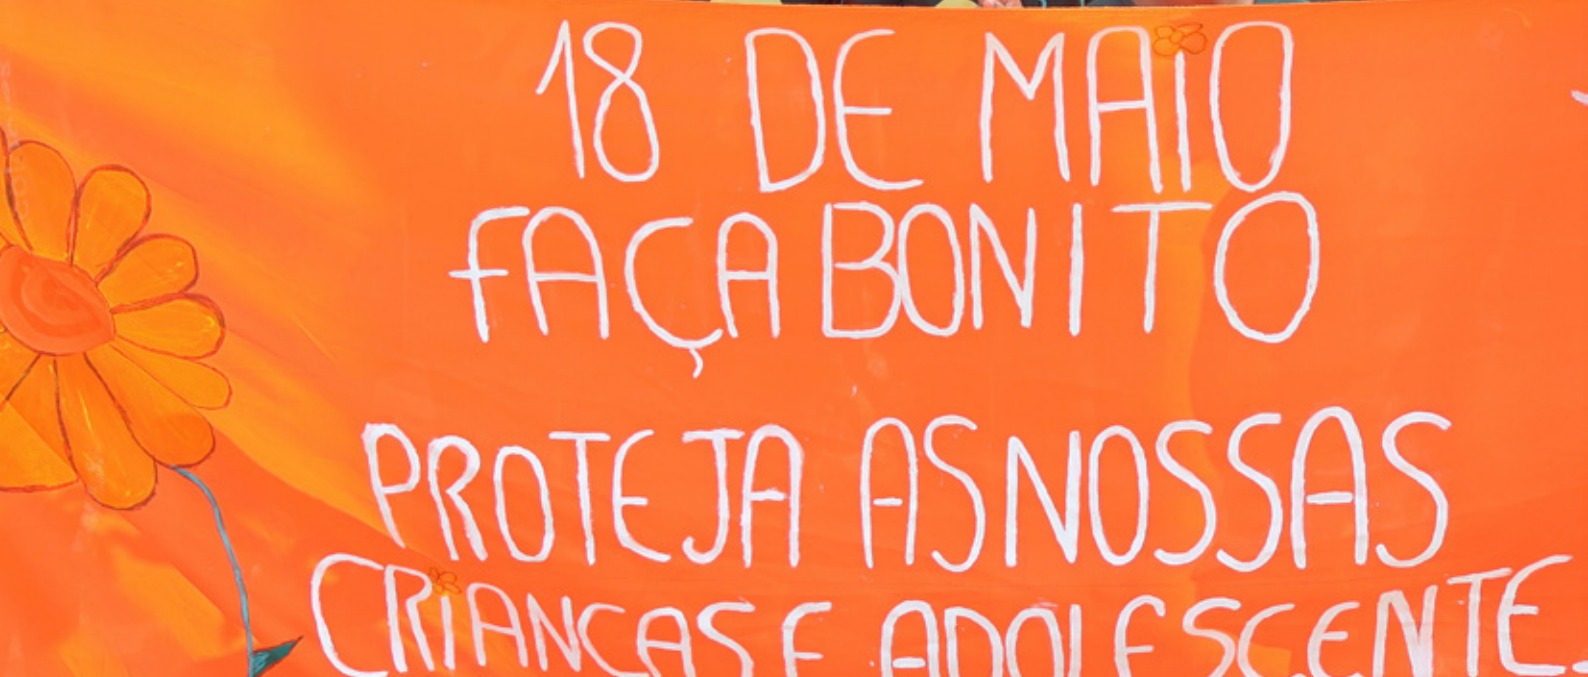 18 DE MAIO
FAÇA BONITO
PROTEJA AS NOSSAS
CRIANÇAS E ADOLESCENTE